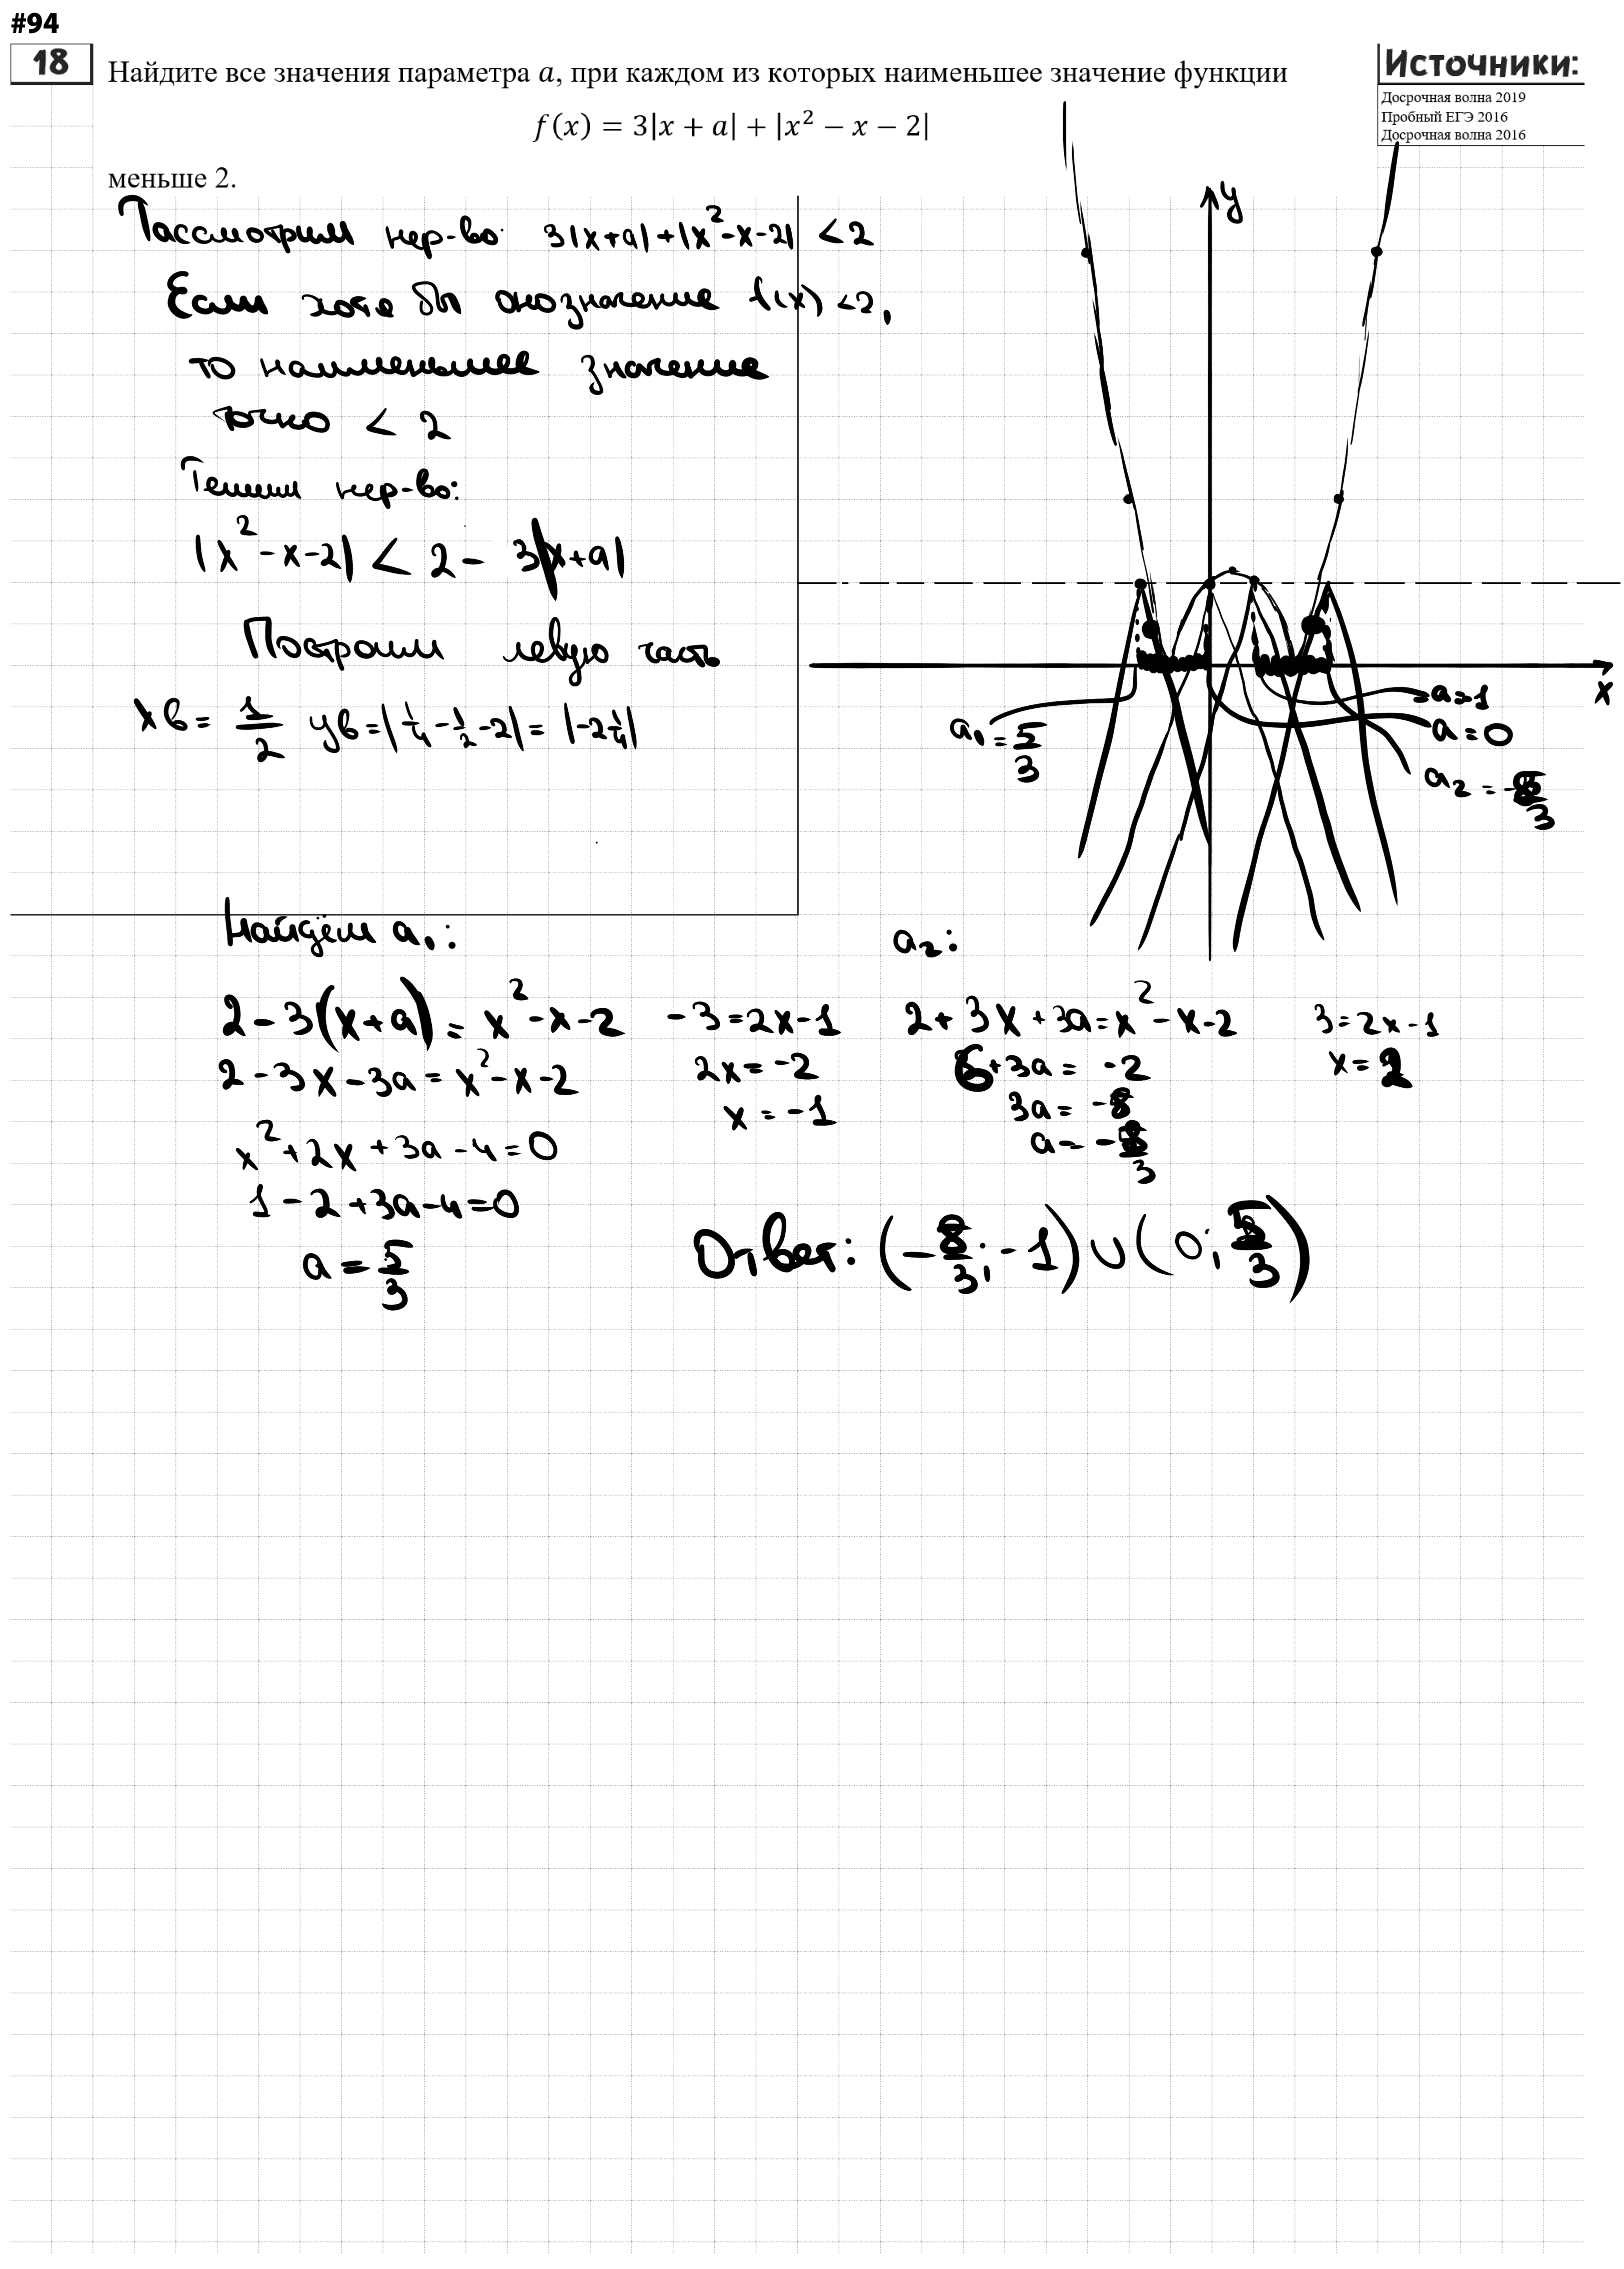 #94
18
Найдите все значения параметра a, при каждом из которых наименьшее значение функции
f(x) = 3|x + a| + |x² − x − 2|
меньше 2.
Источники:
Досрочная волна 2019
Пробный ЕГЭ 2016
Досрочная волна 2016
Рассмотрим нер-во: 3|x+a|+|x²-x-2| <2
Если хотя бы однозначение f(x) <2,
то наименьшее значение
точно < 2
Решим нер-во:
|x²-x-2| < 2 - 3|x+a|
Построим левую часть
xв = 1/2 yв = |1/4 - 1/2 - 2| = |-2 1/4|
y
x
a₁ = 5/3
a=-1
a=0
a₂ = -8/3
Найдём a₁:
2 - 3(x+a) = x² - x - 2
2 - 3x - 3a = x² - x - 2
x² + 2x + 3a - 4 = 0
1 - 2 + 3a - 4 = 0
a = 5/3
-3 = 2x - 1
2x = -2
x = -1
a₂:
2 + 3x + 3a = x² - x - 2
6 + 3a = -2
3a = -8
a = -8/3
3 = 2x - 1
x = 2
Ответ: (-8/3; -1) ∪ (0; 5/3)